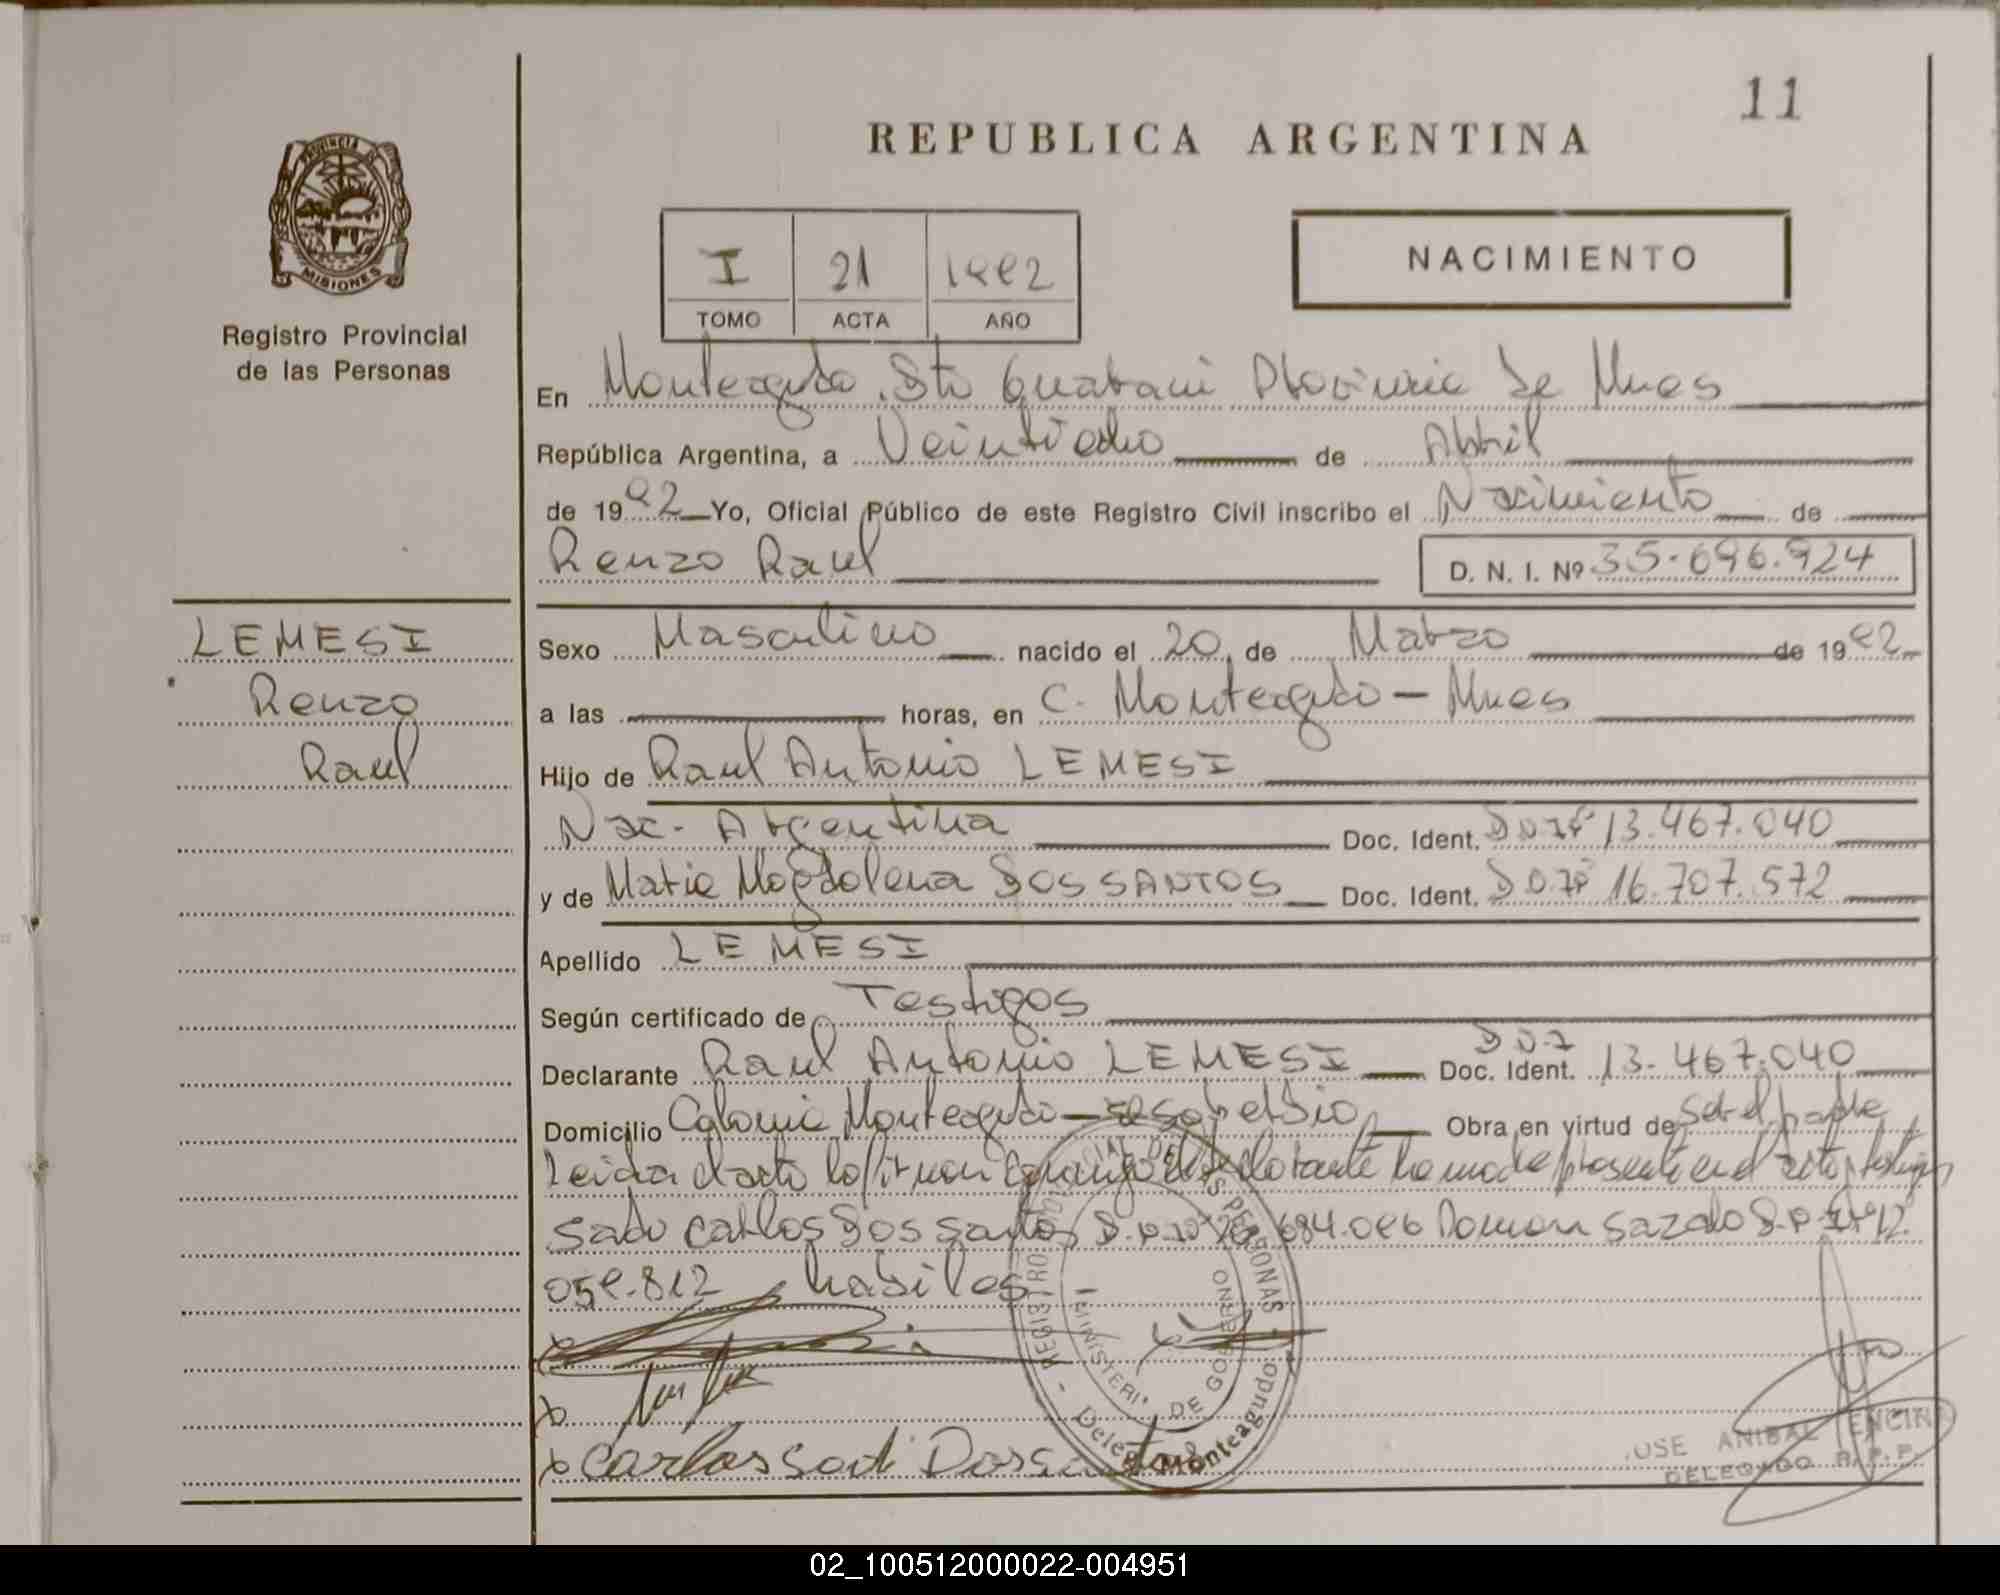 11
REPUBLICA ARGENTINA
PROVINCIA DE
MISIONES
Registro Provincial
de las Personas
I 21 1992
TOMO ACTA AÑO
NACIMIENTO
En Monteagudo. Dto Guarani Provincia de Mnes
República Argentina, a Veintiocho de Abril
de 1992 Yo, Oficial Público de este Registro Civil inscribo el Nacimiento de
Renzo Raul
D. N. I. Nº 35.696.924
LEMESI
Renzo
Raul
Sexo Masculino nacido el 20 de Marzo de 1992
a las horas, en C. Monteagudo - Mnes
Hijo de Raul Antonio LEMESI
Nac. Argentina Doc. Ident. D N I Nº 13.467.040
y de Maria Magdalena DOS SANTOS Doc. Ident. D N I Nº 16.707.572
Apellido LEMESI
Según certificado de Testigos
Declarante Raul Antonio LEMESI Doc. Ident. D N I 13.467.040
Domicilio Colonia Monteagudo Obra en virtud de Ser el padre
Leida el acta la firman conmigo el declarante
Carlos Dos Santos 684.096 Sazalo 12.
059.812 habiles
REGISTRO PROVINCIAL DE LAS PERSONAS
MINISTERIO DE GOBIERNO
Deleg. Monteagudo
Carlos Sadi Dos Santos
JOSE ANIBAL ENCINA
DELEGADO R.P.P.
02_100512000022-004951